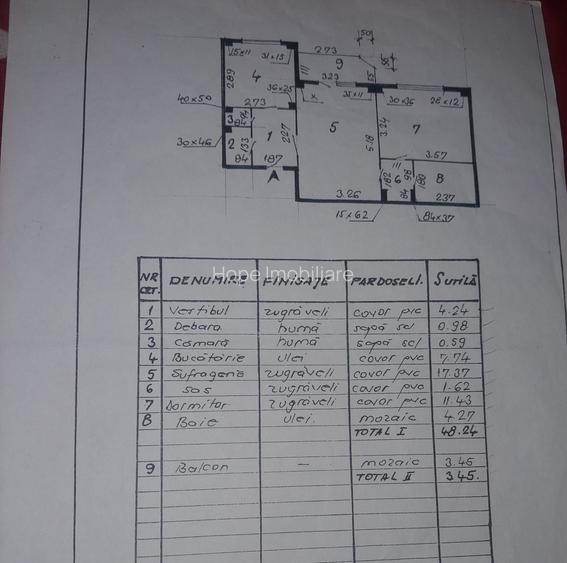 50
273
9
50
15x11
31x15
4
289
111
323
55
36x25
x
35x11
30x36
26x12
40x50
273
3
94
84
1
227
5
5.18
3.24
7
30x46
2
133
84
187
A
111
3.57
182
6
98
180
8
3.26
84
237
15x62
84x37
Hope Imobiliare
NR CRT. DENUMIRE FINISAJE PARDOSELI. SURILĂ
1 Vestibul zugrăveli covor pvc 4.24
2 Debara humă sapă scl 0.98
3 Cămară humă sapă scl 0.59
4 Bucătărie ulei covor pvc 7.74
5 Sufragerie zugrăveli covor pvc 17.37
6 sas zugrăveli covor pvc 1.62
7 Dormitor zugrăveli covor pvc 11.43
8 Baie ulei. mozaic 4.27
TOTAL I 48.24
9 Balcon — mozaic 3.45
TOTAL II 3.45.